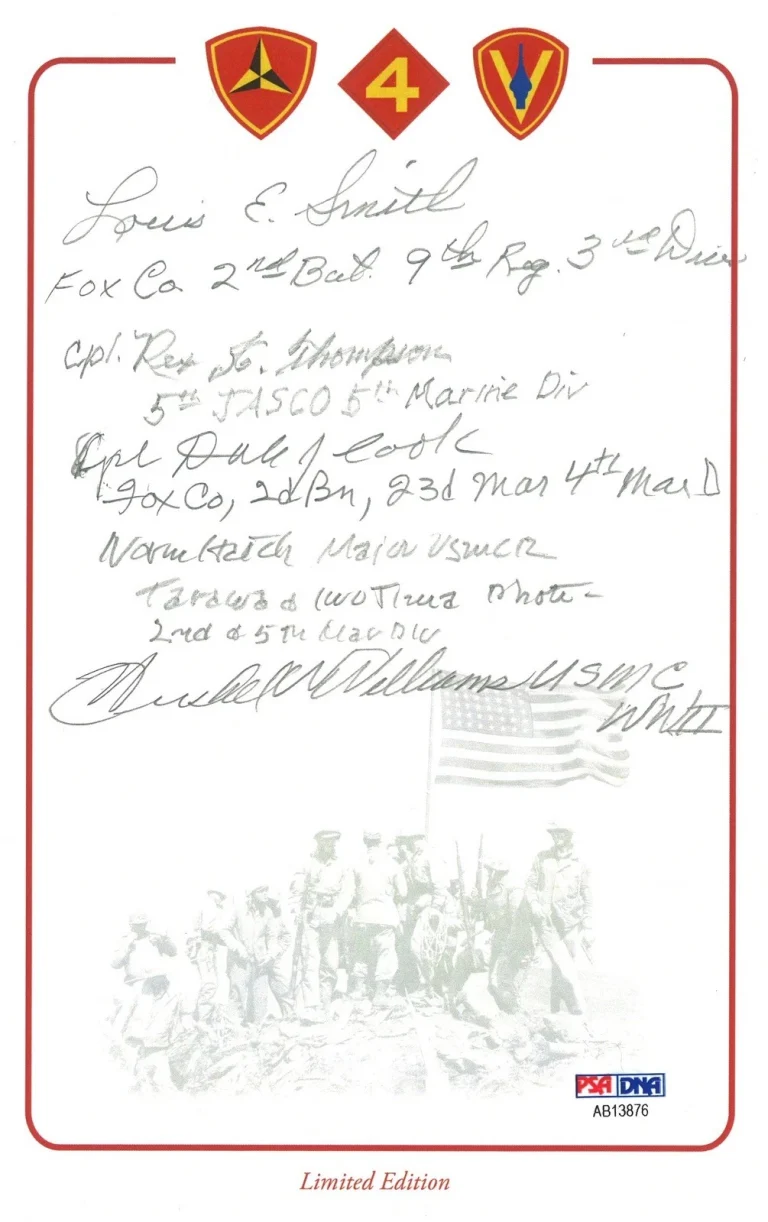 4
Louis E. Smith
Fox Co 2nd Bat. 9th Reg. 3rd Divis
Cpl. Rex G. Thompson
5th JASCO 5th Marine Div
Cpl Dale J Cook
Fox Co, 2d Bn, 23d Mar 4th Mar D
Norm Hatch Major USMCR
Tarawa & Iwo Jima Photo-
2nd & 5th Mar Div
Hershel W Williams USMC
WWII
PSA DNA
AB13876
Limited Edition